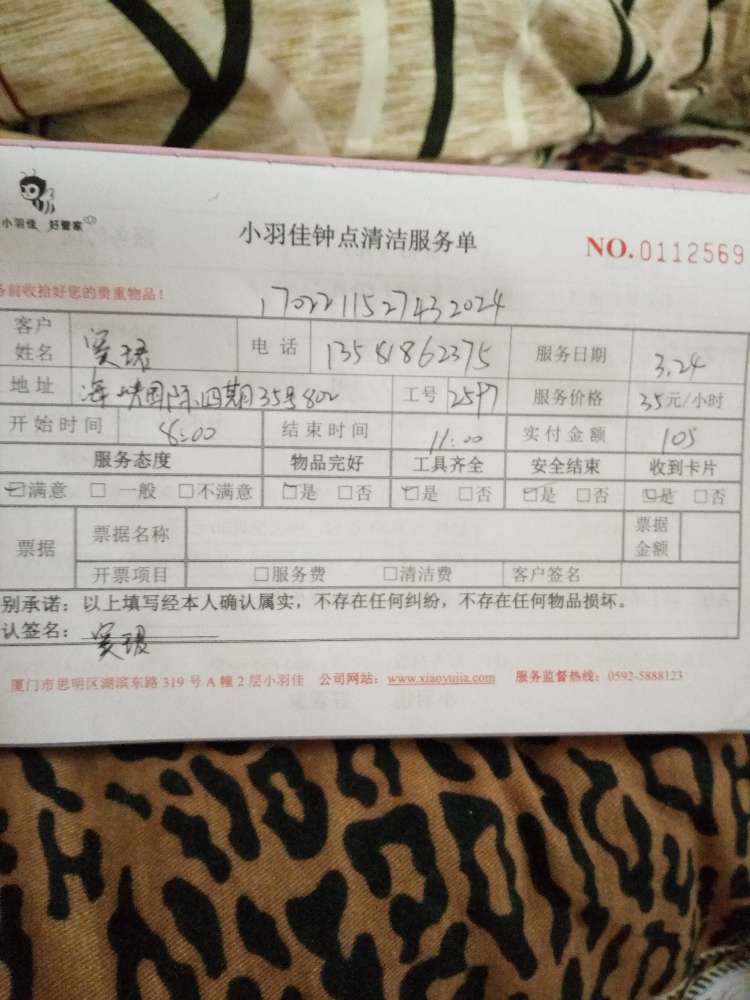 小羽佳 好管家
小羽佳钟点清洁服务单
NO.0112569
务前收拾好您的贵重物品！
1702211527432024
客户姓名 电话 13581862375 服务日期 3.24
地址 海峡国际四期35号802 工号 2597 服务价格 35元/小时
开始时间 8:00 结束时间 11:00 实付金额 105
服务态度 物品完好 工具齐全 安全结束 收到卡片
☑满意 □一般 □不满意 ☑是 □否 ☑是 □否 ☑是 □否 ☑是 □否
票据 票据名称 票据金额
开票项目 □服务费 □清洁费 客户签名
别承诺：以上填写经本人确认属实，不存在任何纠纷，不存在任何物品损坏。
认签名：
厦门市思明区湖滨东路 319 号 A 幢 2 层小羽佳 公司网站：www.xiaoyujia.com 服务监督热线：0592-5888123